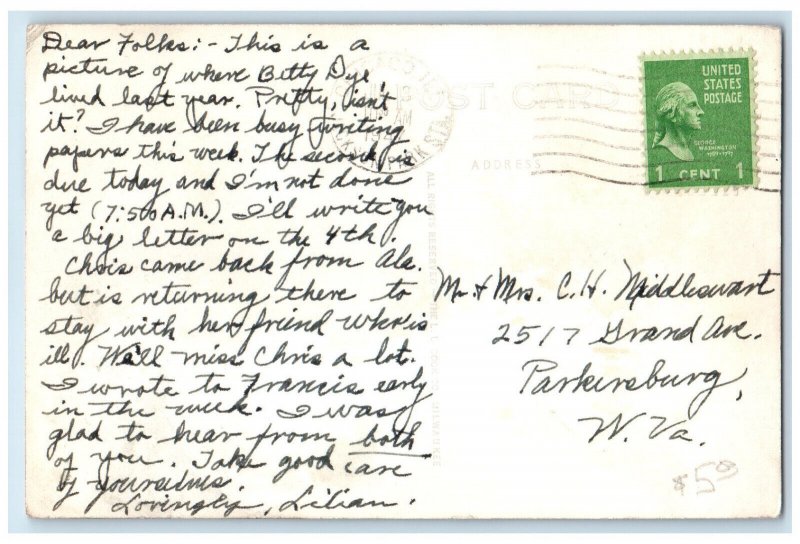 Dear Folks:- This is a
picture of where Betty Dye
lived last year. Pretty, isn't
it? I have been busy writing
papers this week. The second is
due today and I'm not done
yet (7:50 A.M.). I'll write you
a big letter on the 4th.
Chris came back from Ala.
but is returning there to
stay with her friend who is
ill. We'll miss Chris a lot.
I wrote to Francis early
in the week. I was
glad to hear from both
of you. Take good care
of yourselves.
Lovingly, Lilian.
POST CARD
ADDRESS
UNITED
STATES
POSTAGE
GEORGE
WASHINGTON
1789-1797
1 CENT 1
Mr. & Mrs. C. H. Middleswart
2517 Grand Ave.
Parkersburg,
W. Va.
$5.00
ALL RIGHTS RESERVED